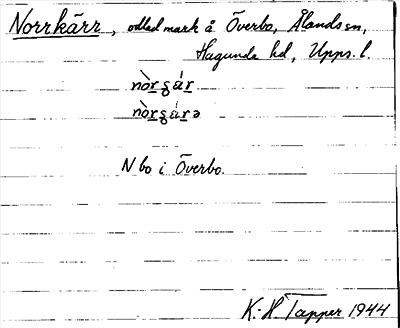 Norrkärr, odlad mark å Överbo, Ålands sn,
Hagunda hd, Upps. l.
nòrʂár
nòrʂárə
N bo i Överbo.
K.-H. Tapper 1944